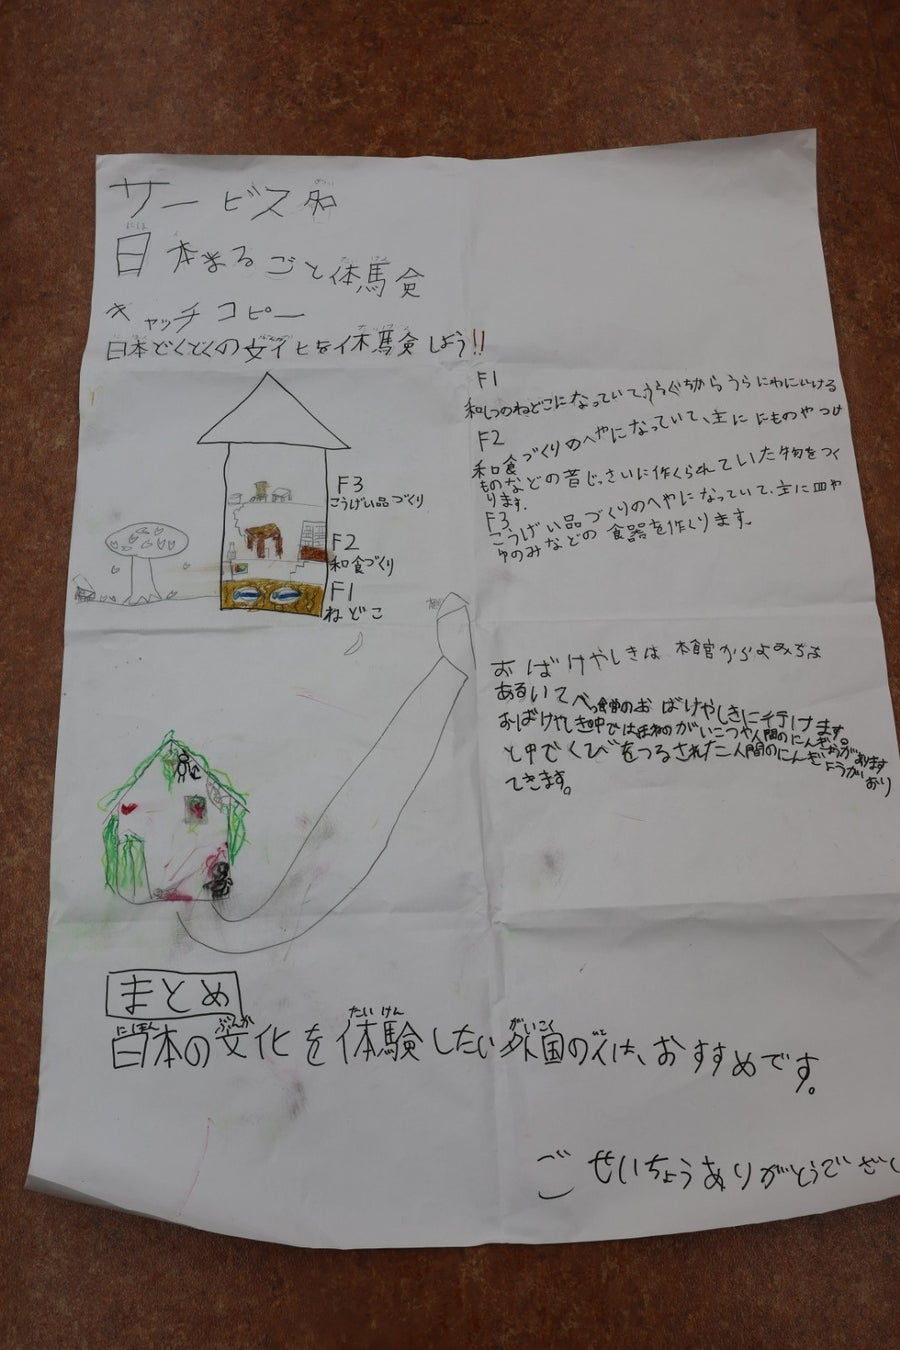 サービス名
日本まるごと体験
キャッチコピー
日本どくどくの文化を体験しよう!!
F3
こうげい品づくり
F2
和食づくり
F1
ねどこ
F1
和しつのねどこになっていて、うらぐちからうらにわにいける
F2
和食づくりのへやになっていて、主ににものやつけ
ものなどの昔じっさいに作くられていた物をつく
ります。
F3
こうげい品づくりのへやになっていて、主に皿や
ゆのみなどの食器を作くります。
おばけやしきは本館から
あるいてべっ館のおばけやしきに行けます。
おばけやしき中では ほねのがいこつや人間のにんぎょうがあります
と中でくびをつるされた人間のにんぎょうがおり
てきます。
まとめ
にほん ぶんか たいけん がいこく
日本の文化を体験したい外国の人は、おすすめです。
ごせいちょうありがとうござい